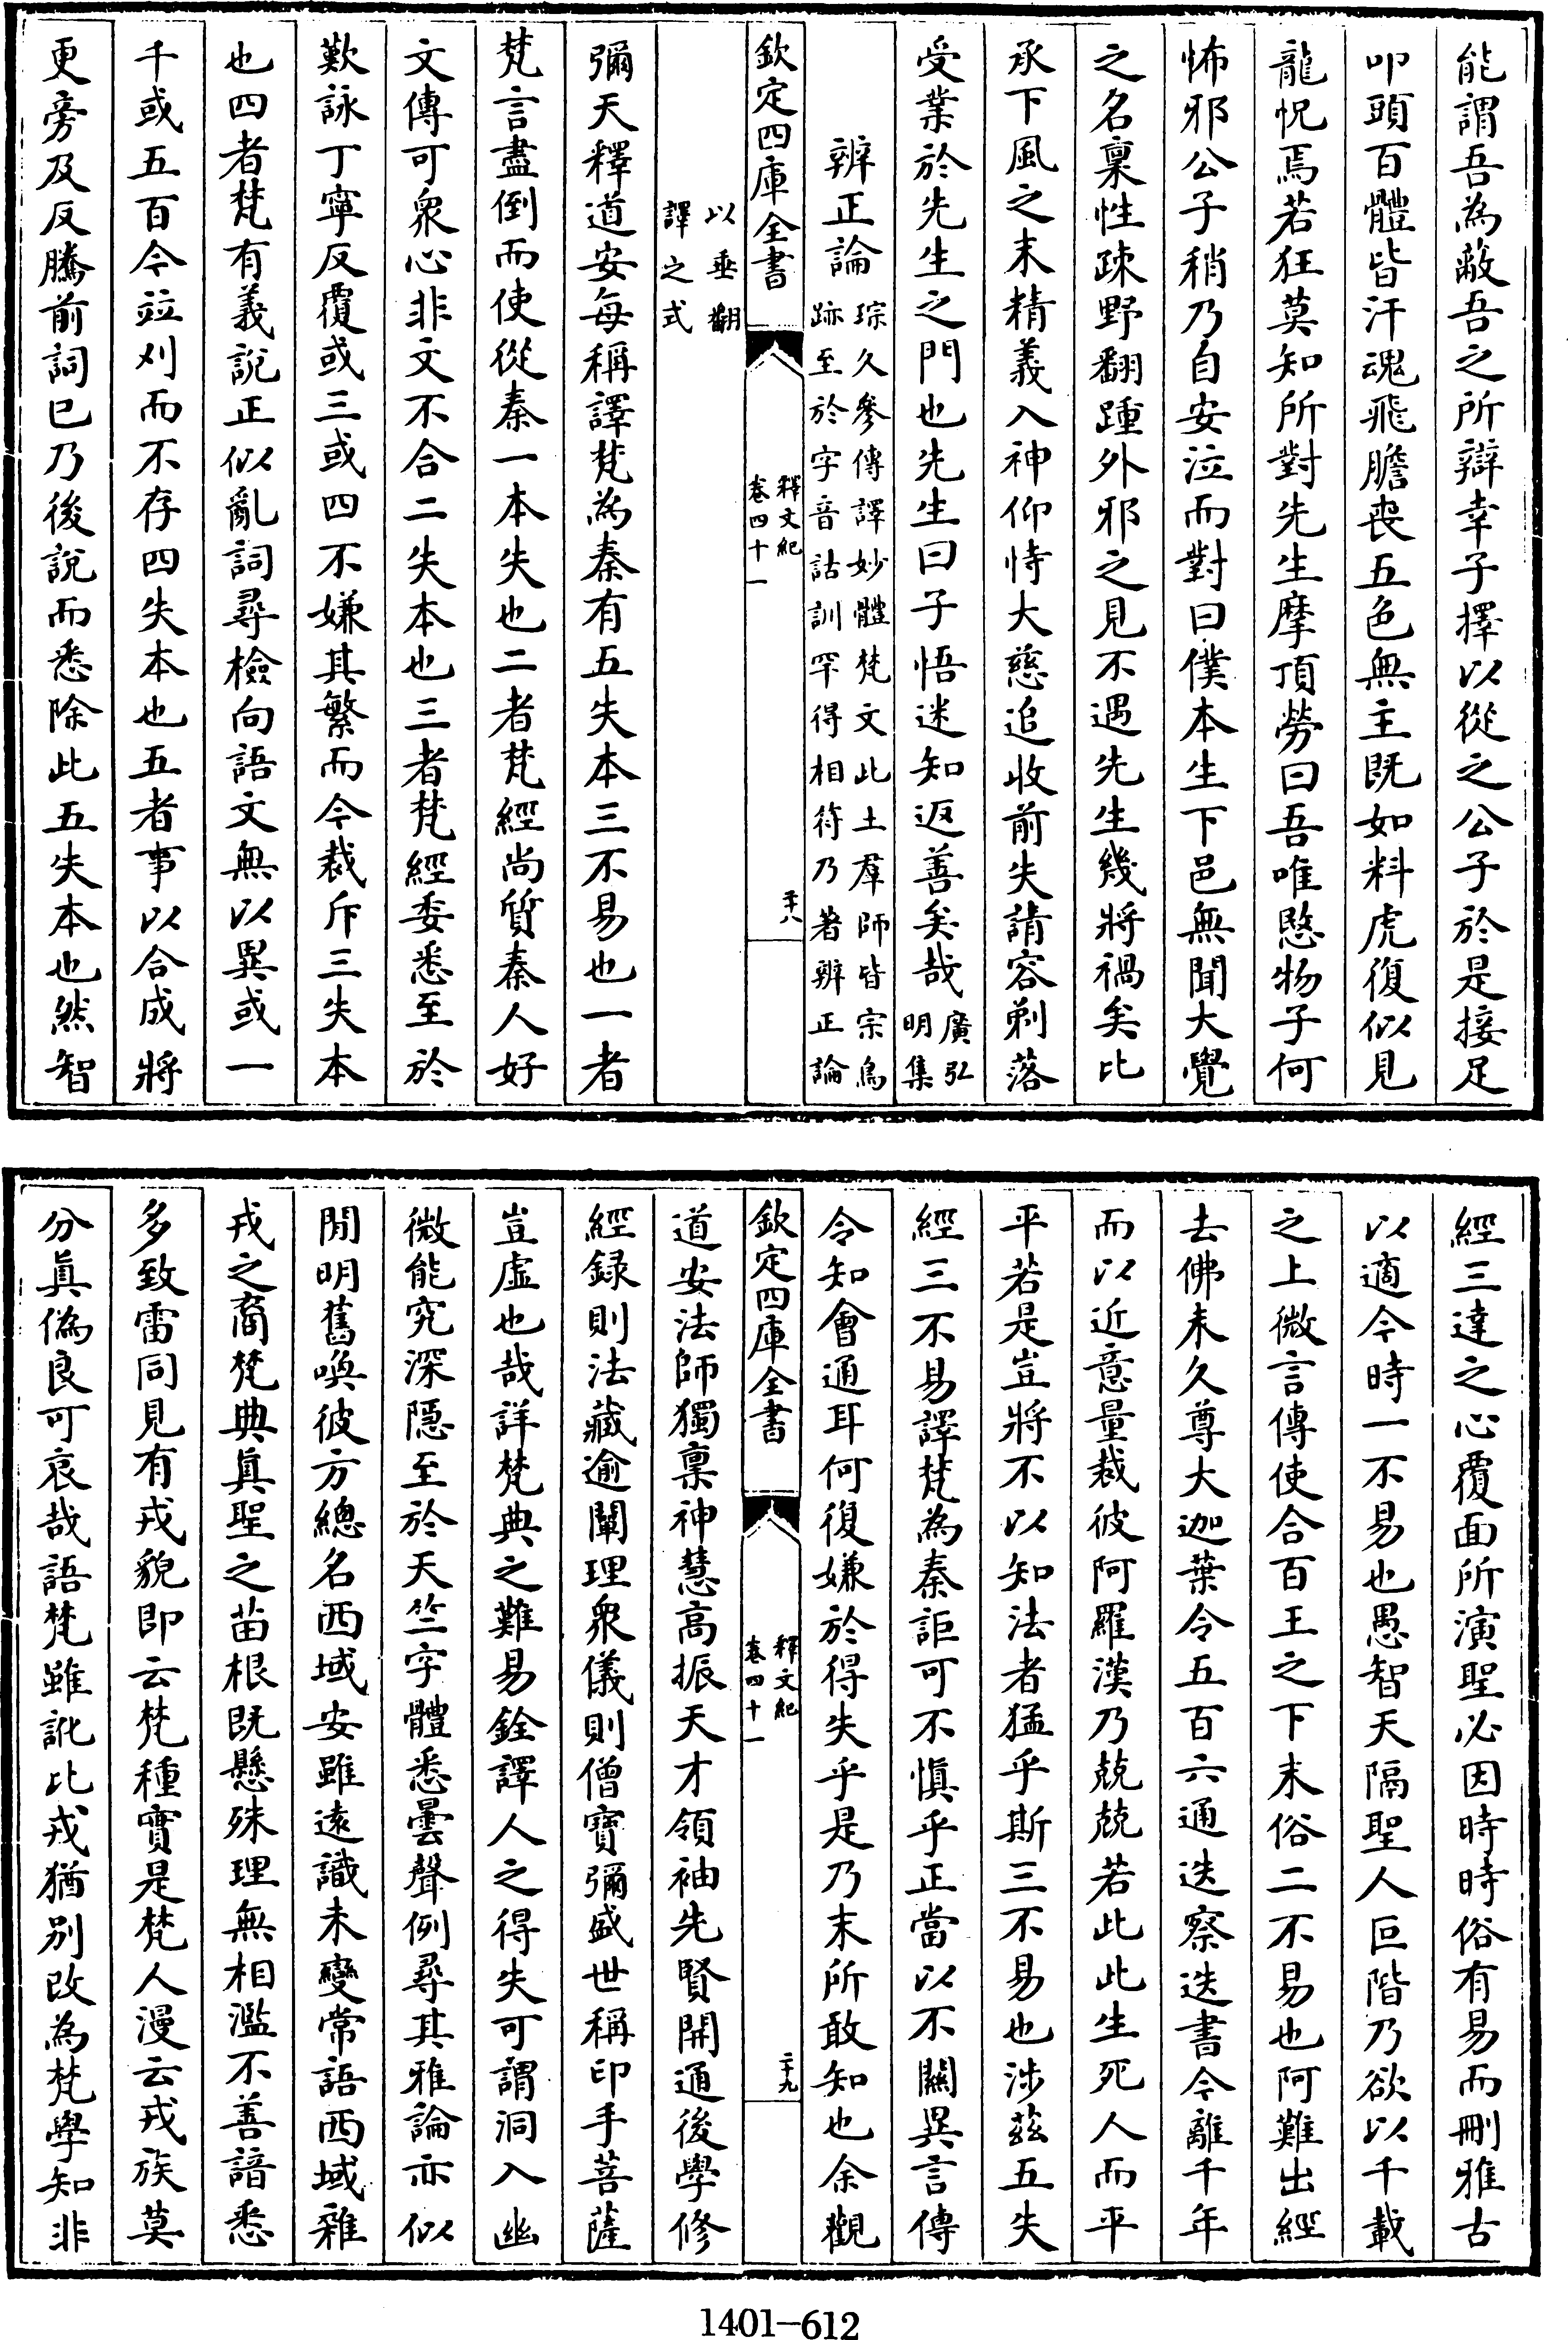 能謂吾為敵吾之所辯幸子擇以從之公子於是接足
叩頭百體皆汗魂飛膽喪五色無主既如料虎復似見
龍怳焉若狂莫知所對先生摩頂勞曰吾唯愍物子何
怖邪公子稍乃自安泣而對曰僕本生下邑無聞大覺
之名稟性疎野翻踵外邪之見不遇先生幾將禍矣比
承下風之末精義入神仰恃大慈追收前失請容剃落
受業於先生之門也先生曰子悟迷知返善矣哉廣弘
明集
辨正論琮久參傳譯妙體梵文此土羣師皆宗鳥
跡至於字音詁訓罕得相符乃著辨正論
欽定四庫全書
釋文紀
卷四十一
二十八
以垂翻
譯之式
彌天釋道安每稱譯梵為秦有五失本三不易也一者
梵言盡倒而使從秦一本失也二者梵經尚質秦人好
文傳可衆心非文不合二失本也三者梵經委悉至於
歎詠丁寧反覆或三或四不嫌其繁而今裁斥三失本
也四者梵有義說正似亂詞尋檢向語文無以異或一
千或五百今竝刈而不存四失本也五者事以合成將
更旁及反騰前詞已乃後說而悉除此五失本也然智
經三達之心覆面所演聖必因時時俗有易而刪雅古
以適今時一不易也愚智天隔聖人叵階乃欲以千載
之上微言傳使合百王之下末俗二不易也阿難出經
去佛未久尊大迦葉令五百六通迭察迭書今離千年
而以近意量裁彼阿羅漢乃兢兢若此此生死人而平
平若是豈將不以知法者猛乎斯三不易也涉茲五失
經三不易譯梵為秦詎可不慎乎正當以不關異言傳
令知會通耳何復嫌於得失乎是乃末所敢知也余觀
欽定四庫全書
釋文紀
卷四十一
二十九
道安法師獨稟神慧高振天才領袖先賢開通後學修
經録則法藏逾闡理衆儀則僧寶彌盛世稱印手菩薩
豈虛也哉詳梵典之難易銓譯人之得失可謂洞入幽
微能究深隱至於天竺字體悉曇聲例尋其雅論亦似
閒明舊喚彼方總名西域安雖遠識未變常語西域雜
戎之裔梵典眞聖之苗根既懸殊理無相濫不善諳悉
多致雷同見有戎貌即云梵種實是梵人漫云戎族莫
分眞偽良可哀哉語梵雖訛比戎猶別改為梵學知非
1401-612